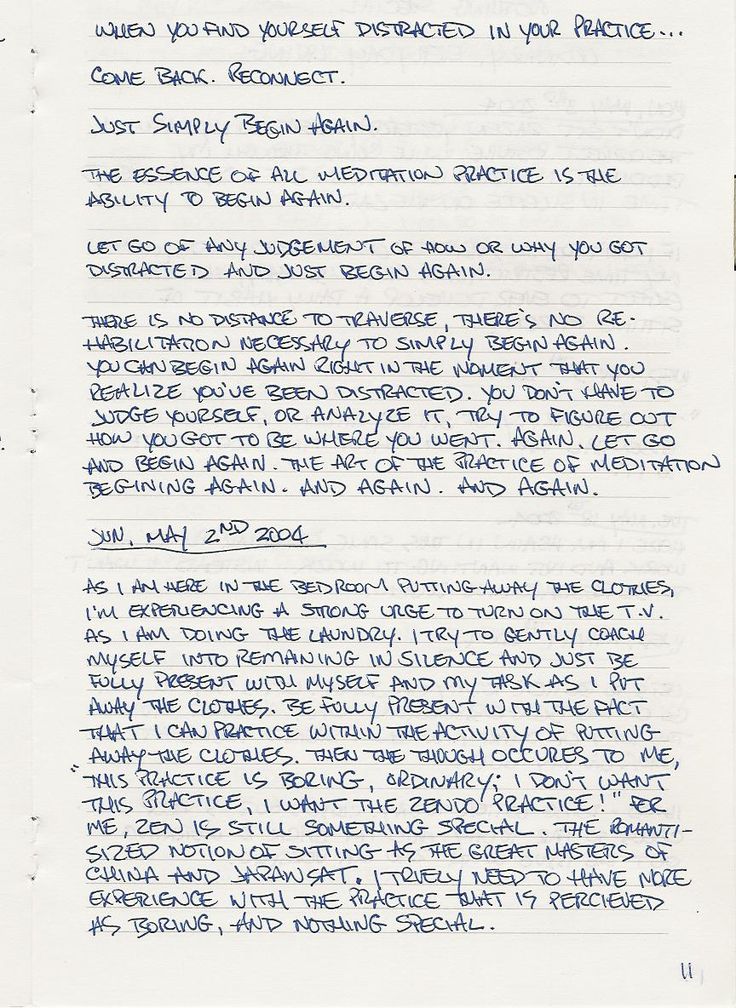 WHEN YOU FIND YOURSELF DISTRACTED IN YOUR PRACTICE...
COME BACK. RECONNECT.
JUST SIMPLY BEGIN AGAIN.
THE ESSENCE OF ALL MEDITATION PRACTICE IS THE
ABILITY TO BEGIN AGAIN.
LET GO OF ANY JUDGEMENT OF HOW OR WHY YOU GOT
DISTRACTED AND JUST BEGIN AGAIN.
THERE IS NO DISTANCE TO TRAVERSE, THERE'S NO RE-
HABILITATION NECESSARY TO SIMPLY BEGIN AGAIN.
YOU CAN BEGIN AGAIN RIGHT IN THE MOMENT THAT YOU
REALIZE YOU'VE BEEN DISTRACTED. YOU DON'T HAVE TO
JUDGE YOURSELF, OR ANALYZE IT, TRY TO FIGURE OUT
HOW YOU GOT TO BE WHERE YOU WENT. AGAIN. LET GO
AND BEGIN AGAIN. THE ART OF THE PRACTICE OF MEDITATION
BEGINING AGAIN. AND AGAIN. AND AGAIN.
SUN, MAY 2ND 2004
AS I AM HERE IN THE BEDROOM PUTTING AWAY THE CLOTHES,
I'M EXPERIENCING A STRONG URGE TO TURN ON THE T.V.
AS I AM DOING THE LAUNDRY. I TRY TO GENTLY COACH
MYSELF INTO REMANING IN SILENCE AND JUST BE
FULLY PRESENT WITH MYSELF AND MY TASK AS I PUT
AWAY THE CLOTHES. BE FULLY PRESENT WITH THE FACT
THAT I CAN PRACTICE WITHIN THE ACTIVITY OF PUTTING
AWAY THE CLOTHES. THEN THE THOUGH OCCURES TO ME,
"THIS PRACTICE IS BORING, ORDINARY; I DON'T WANT
THIS PRACTICE, I WANT THE ZENDO PRACTICE!" FOR
ME, ZEN IS STILL SOMETHING SPECIAL. THE ROMANTI-
SIZED NOTION OF SITTING AS THE GREAT MASTERS OF
CHINA AND JAPAN SAT. I TRUELY NEED TO HAVE MORE
EXPERIENCE WITH THE PRACTICE THAT IS PERCIEVED
AS BORING, AND NOTHING SPECIAL.
11